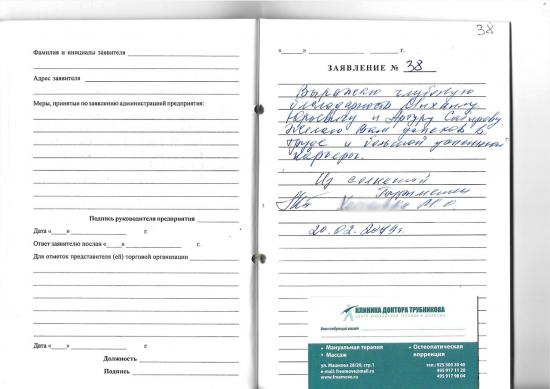 Фамилия и инициалы заявителя
Адрес заявителя
Меры, принятые по заявлению администрацией предприятия:
Подпись руководителя предприятия
Дата «___» г.
Ответ заявителю послан «___» г.
Для отметок представителя (ей) торговой организации
Дата «___» г.
Должность
Подпись
38
«___» г.
ЗАЯВЛЕНИЕ № 38
Выражаю глубокую
благодарность
Юрьевичу и Артуру Сабирову
Желаю Вам успехов в
труде и большой успешной
карьеры.
Из солнечной
М.О
20.02.2019г.
КЛИНИКА ДОКТОРА ТРУБНИКОВА
• Мануальная терапия
• Массаж
• Остеопатическая
коррекция
ул. Машкова 28/20, стр.1
www.freemove.ru
тел.: 925 505 30 40
495 917 11 20
495 917 98 04